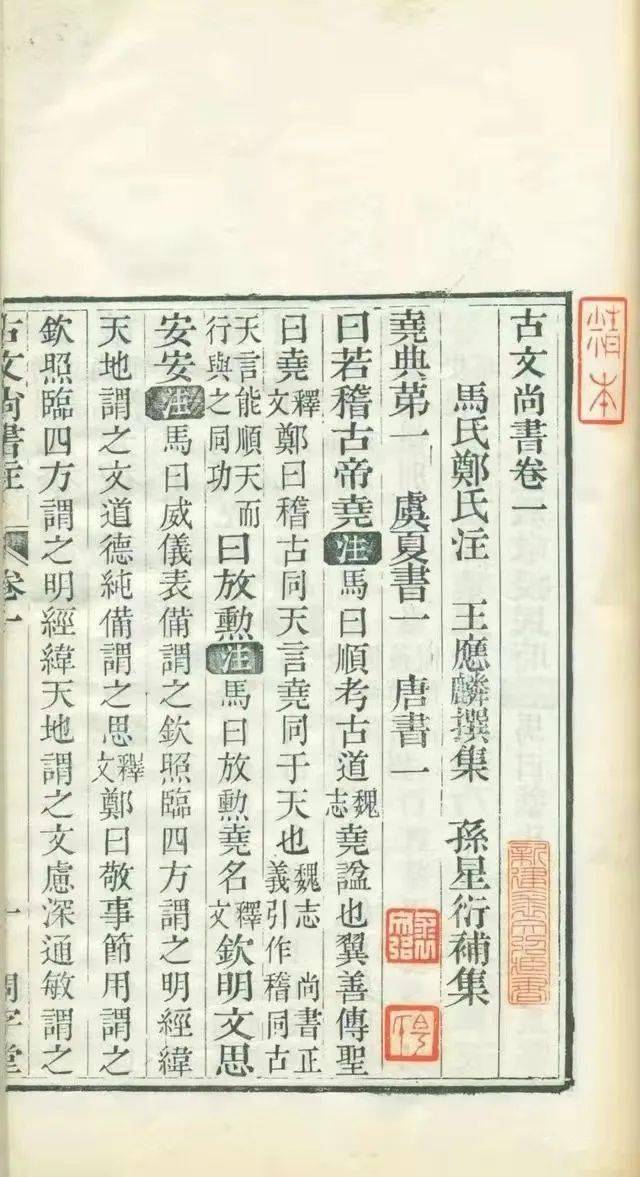 古文尚書卷一
馬氏鄭氏注 王應麟撰集 孫星衍補集
堯典第一 虞夏書一 唐書一
曰若稽古帝堯注馬曰順考古道魏志堯諡也翼善傳聖
曰堯釋文鄭曰稽古同天言堯同于天也魏志 尚書正義引作稽同古
天言能順天而行與之同功曰放勲注馬曰放勲堯名釋文欽明文思
安安注馬曰威儀表備謂之欽照臨四方謂之明經緯
天地謂之文道德純備謂之思釋文鄭曰敬事節用謂之
欽照臨四方謂之明經緯天地謂之文慮深通敏謂之
古文尚書注 卷一 一